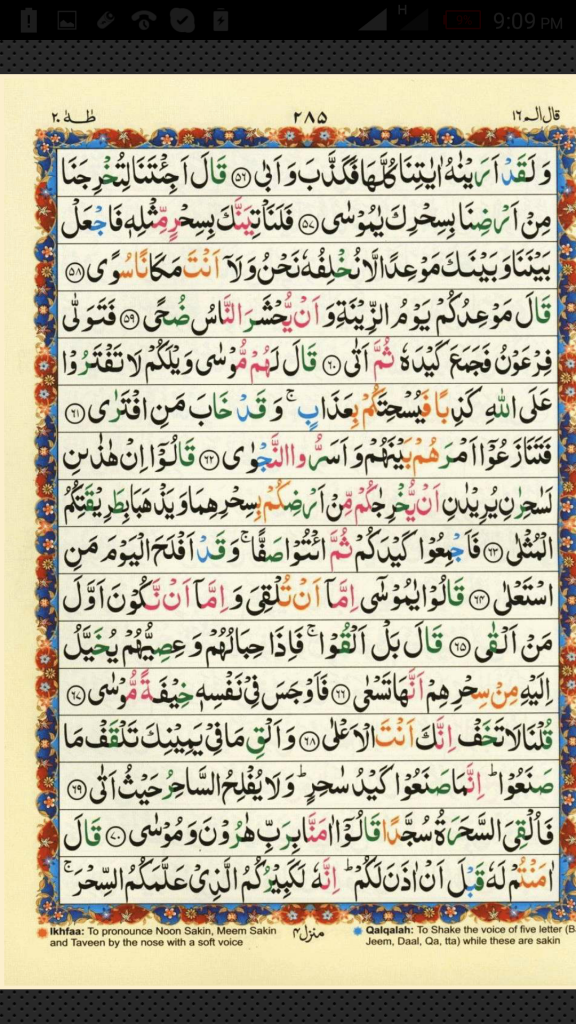 H 9:09 PM
طٰهٰ ٢٠ ٢٨٥ قال الم ١٦
وَ لَقَدْ اَرَيْنٰهُ اٰيٰتِنَا كُلَّهَا فَكَذَّبَ وَ اَبٰى ﴿٥٦﴾ قَالَ اَجِئْتَنَا لِتُخْرِجَنَا
مِنْ اَرْضِنَا بِسِحْرِكَ يٰمُوْسٰى ﴿٥٧﴾ فَلَنَاْتِيَنَّكَ بِسِحْرٍ مِّثْلِهٖ فَاجْعَلْ
بَيْنَنَا وَ بَيْنَكَ مَوْعِدًا لَّا نُخْلِفُهٗ نَحْنُ وَ لَاۤ اَنْتَ مَكَانًا سُوًى ﴿٥٨﴾
قَالَ مَوْعِدُكُمْ يَوْمُ الزِّيْنَةِ وَ اَنْ يُّحْشَرَ النَّاسُ ضُحًى ﴿٥٩﴾ فَتَوَلّٰى
فِرْعَوْنُ فَجَمَعَ كَيْدَهٗ ثُمَّ اَتٰى ﴿٦٠﴾ قَالَ لَهُمْ مُّوْسٰى وَيْلَكُمْ لَا تَفْتَرُوْا
عَلَى اللّٰهِ كَذِبًا فَيُسْحِتَكُمْ بِعَذَابٍ ۚ وَ قَدْ خَابَ مَنِ افْتَرٰى ﴿٦١﴾
فَتَنَازَعُوْۤا اَمْرَهُمْ بَيْنَهُمْ وَ اَسَرُّوا النَّجْوٰى ﴿٦٢﴾ قَالُوْۤا اِنْ هٰذٰىنِ
لَسٰحِرٰنِ يُرِيْدٰنِ اَنْ يُّخْرِجٰكُمْ مِّنْ اَرْضِكُمْ بِسِحْرِهِمَا وَ يَذْهَبَا بِطَرِيْقَتِكُمُ
الْمُثْلٰى ﴿٦٣﴾ فَاَجْمِعُوْا كَيْدَكُمْ ثُمَّ ائْتُوْا صَفًّا ۚ وَ قَدْ اَفْلَحَ الْيَوْمَ مَنِ
اسْتَعْلٰى ﴿٦٤﴾ قَالُوْا يٰمُوْسٰۤى اِمَّاۤ اَنْ تُلْقِيَ وَ اِمَّاۤ اَنْ نَّكُوْنَ اَوَّلَ
مَنْ اَلْقٰى ﴿٦٥﴾ قَالَ بَلْ اَلْقُوْا ۚ فَاِذَا حِبَالُهُمْ وَ عِصِيُّهُمْ يُخَيَّلُ
اِلَيْهِ مِنْ سِحْرِهِمْ اَنَّهَا تَسْعٰى ﴿٦٦﴾ فَاَوْجَسَ فِيْ نَفْسِهٖ خِيْفَةً مُّوْسٰى ﴿٦٧﴾
قُلْنَا لَا تَخَفْ اِنَّكَ اَنْتَ الْاَعْلٰى ﴿٦٨﴾ وَ اَلْقِ مَا فِيْ يَمِيْنِكَ تَلْقَفْ مَا
صَنَعُوْا ؕ اِنَّمَا صَنَعُوْا كَيْدُ سٰحِرٍ ؕ وَ لَا يُفْلِحُ السَّاحِرُ حَيْثُ اَتٰى ﴿٦٩﴾
فَاُلْقِيَ السَّحَرَةُ سُجَّدًا قَالُوْۤا اٰمَنَّا بِرَبِّ هٰرُوْنَ وَ مُوْسٰى ﴿٧٠﴾ قَالَ
اٰمَنْتُمْ لَهٗ قَبْلَ اَنْ اٰذَنَ لَكُمْ ؕ اِنَّهٗ لَكَبِيْرُكُمُ الَّذِيْ عَلَّمَكُمُ السِّحْرَ ۚ
منزل ٤
Ikhfaa: To pronounce Noon Sakin, Meem Sakin
and Taveen by the nose with a soft voice
Qalqalah: To Shake the voice of five letter (B
Jeem, Daal, Qa, tta) while these are sakin